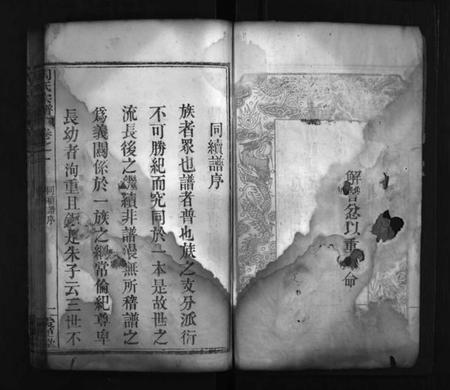 解讐忿以重命
同續譜序
族者眾也譜者普也族之支分派衍
不可勝紀而究同於一本是故世之
流長後之繼續非譜漫無所稽譜之
為義關係於一族之綱常倫紀尊卑
長幼者洵重且 是朱子云三世不
氏宗譜 卷之一 同續譜序 一